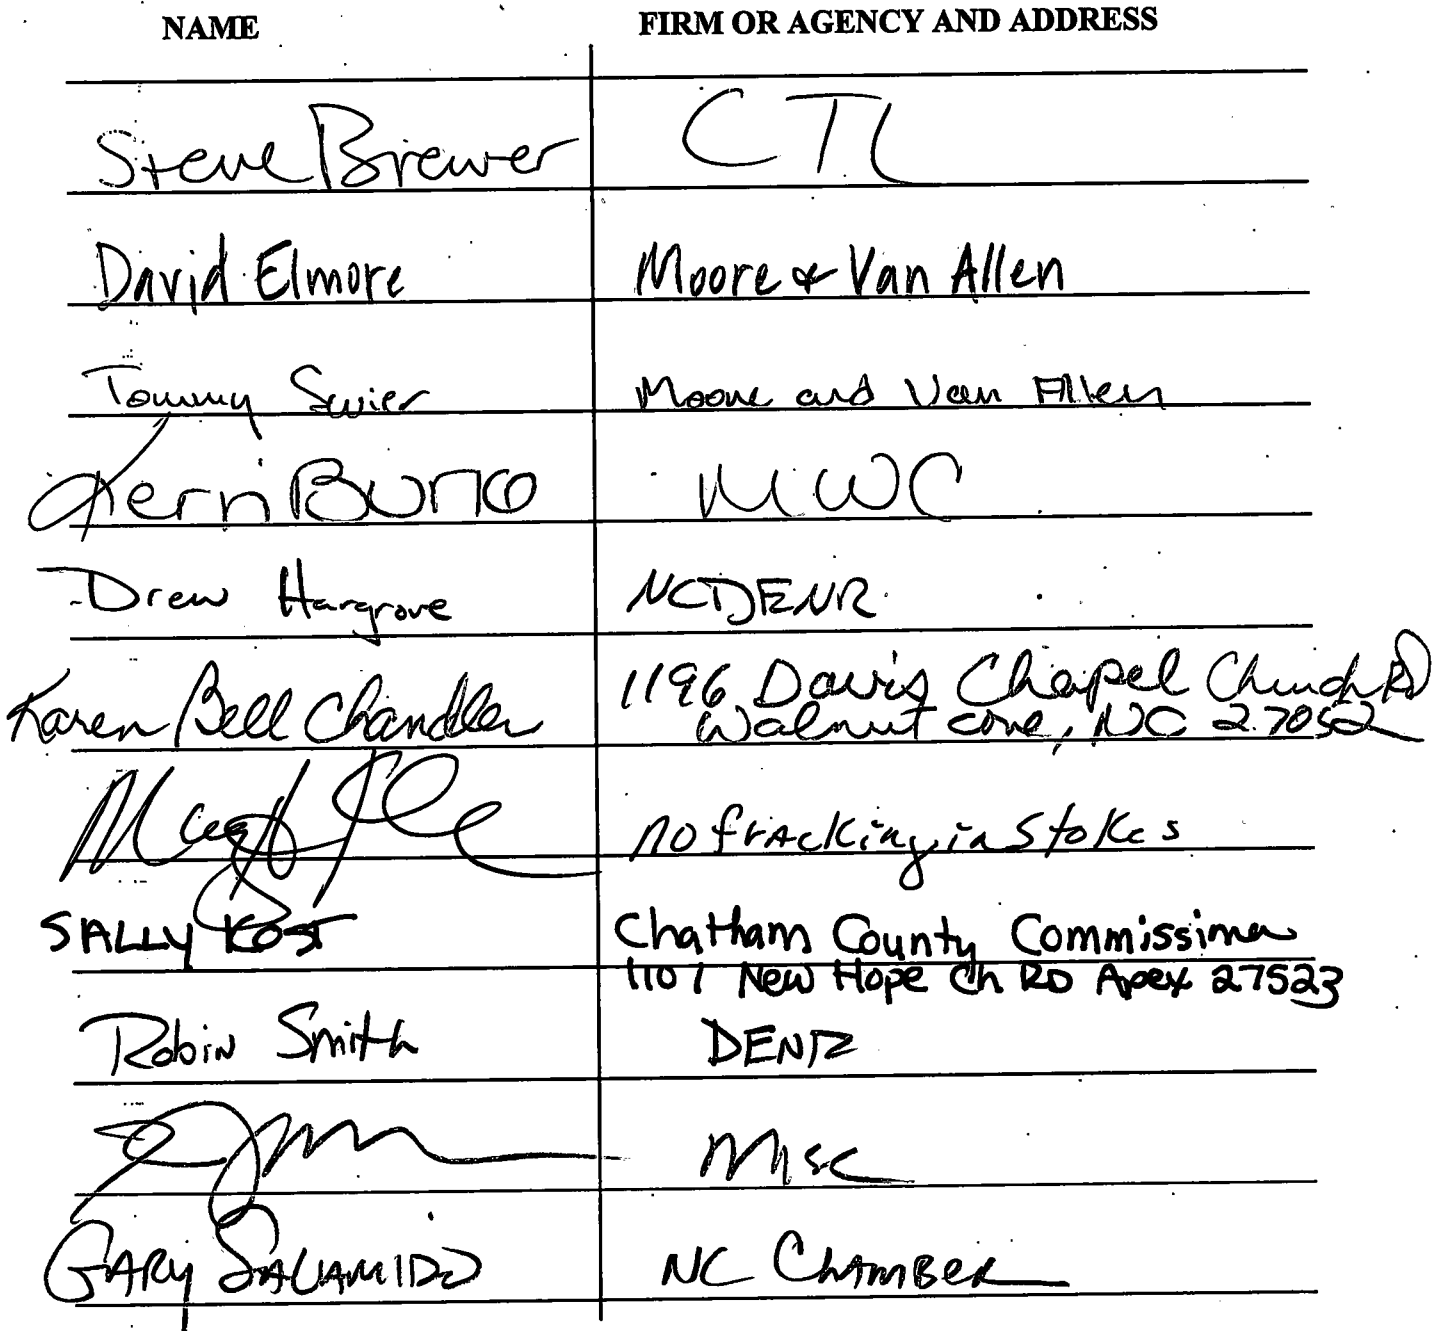 NAME FIRM OR AGENCY AND ADDRESS
Steve Brewer CTL
David Elmore Moore & Van Allen
Tommy Sevier Moore and Van Allen
Kerri MWC
Drew Hargrove NCDENR
Karen Bell Chandler 1196 Davis Chapel Church Rd
Walnut Cove, NC 27052
no fracking in Stokes
SALLY KOST Chatham County Commissioner
1101 New Hope Ch RD Apex 27523
Robin Smith DENR
Misc
GARY SALAMIDO NC CHAMBER